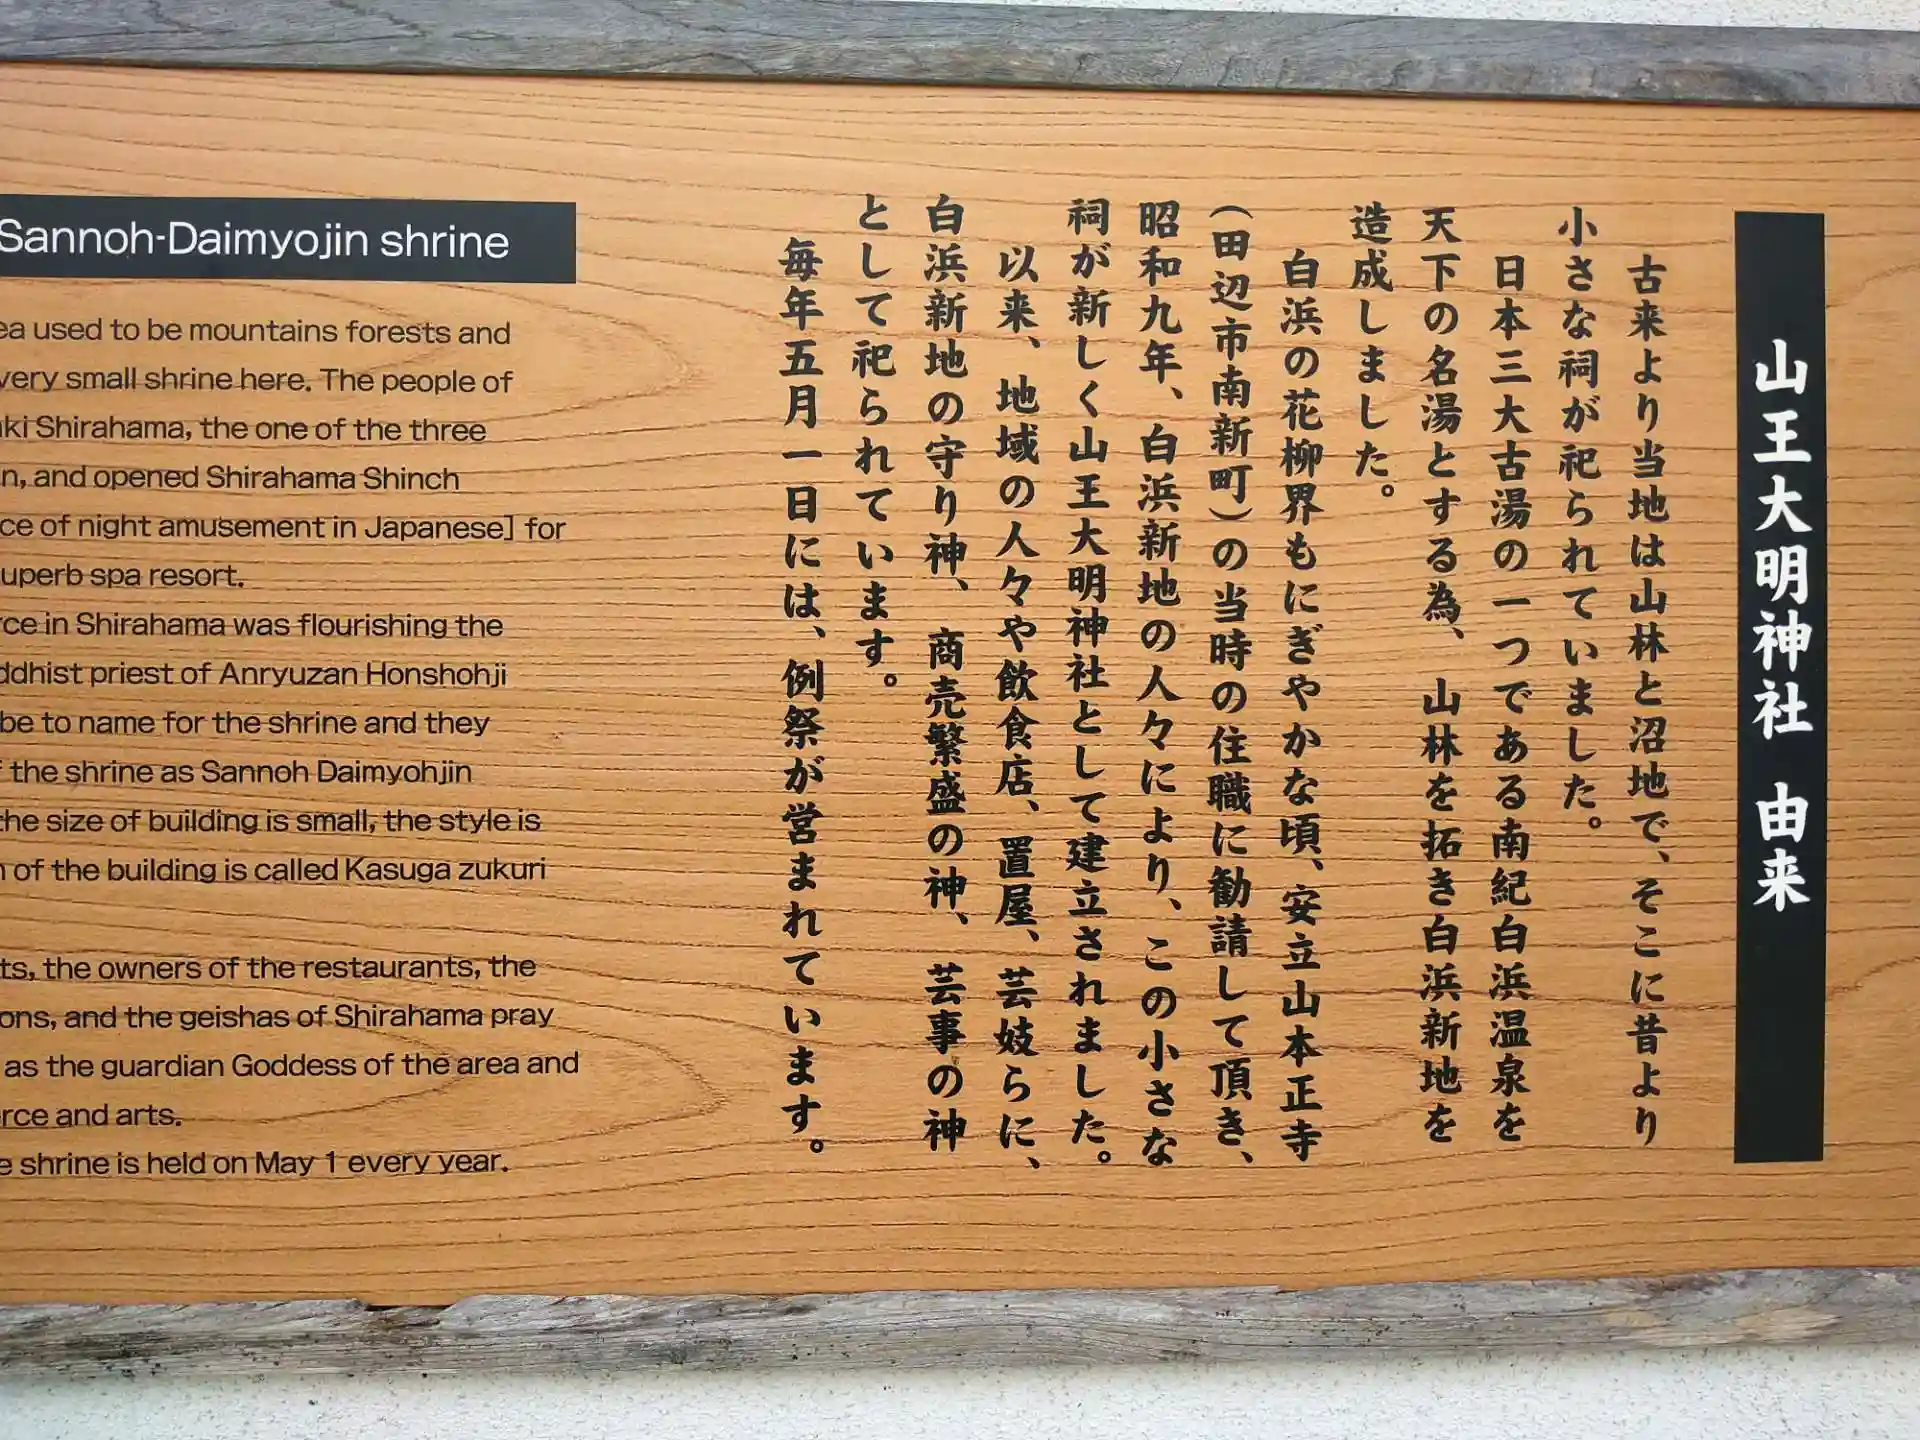 山王大明神社 由来
古来より当地は山林と沼地で、そこに昔より
小さな祠が祀られていました。
日本三大古湯の一つである南紀白浜温泉を
天下の名湯とする為、山林を拓き白浜新地を
造成しました。
白浜の花柳界もにぎやかな頃、安立山本正寺
(田辺市南新町)の当時の住職に勧請して頂き、
昭和九年、白浜新地の人々により、この小さな
祠が新しく山王大明神社として建立されました。
以来、地域の人々や飲食店、置屋、芸妓らに、
白浜新地の守り神、商売繁盛の神、芸事の神
として祀られています。
毎年五月一日には、例祭が営まれています。
Sannoh-Daimyojin shrine
used to be mountains forests and
very small shrine here. The people of
Shirahama, the one of the three
and opened Shirahama Shinch
of night amusement in Japanese] for
spa resort.
in Shirahama was flourishing the
priest of Anryuzan Honshohji
be to name for the shrine and they
the shrine as Sannoh Daimyohjin
the size of building is small, the style is
of the building is called Kasuga zukuri
the owners of the restaurants, the
and the geishas of Shirahama pray
as the guardian Goddess of the area and
and arts.
shrine is held on May 1 every year.